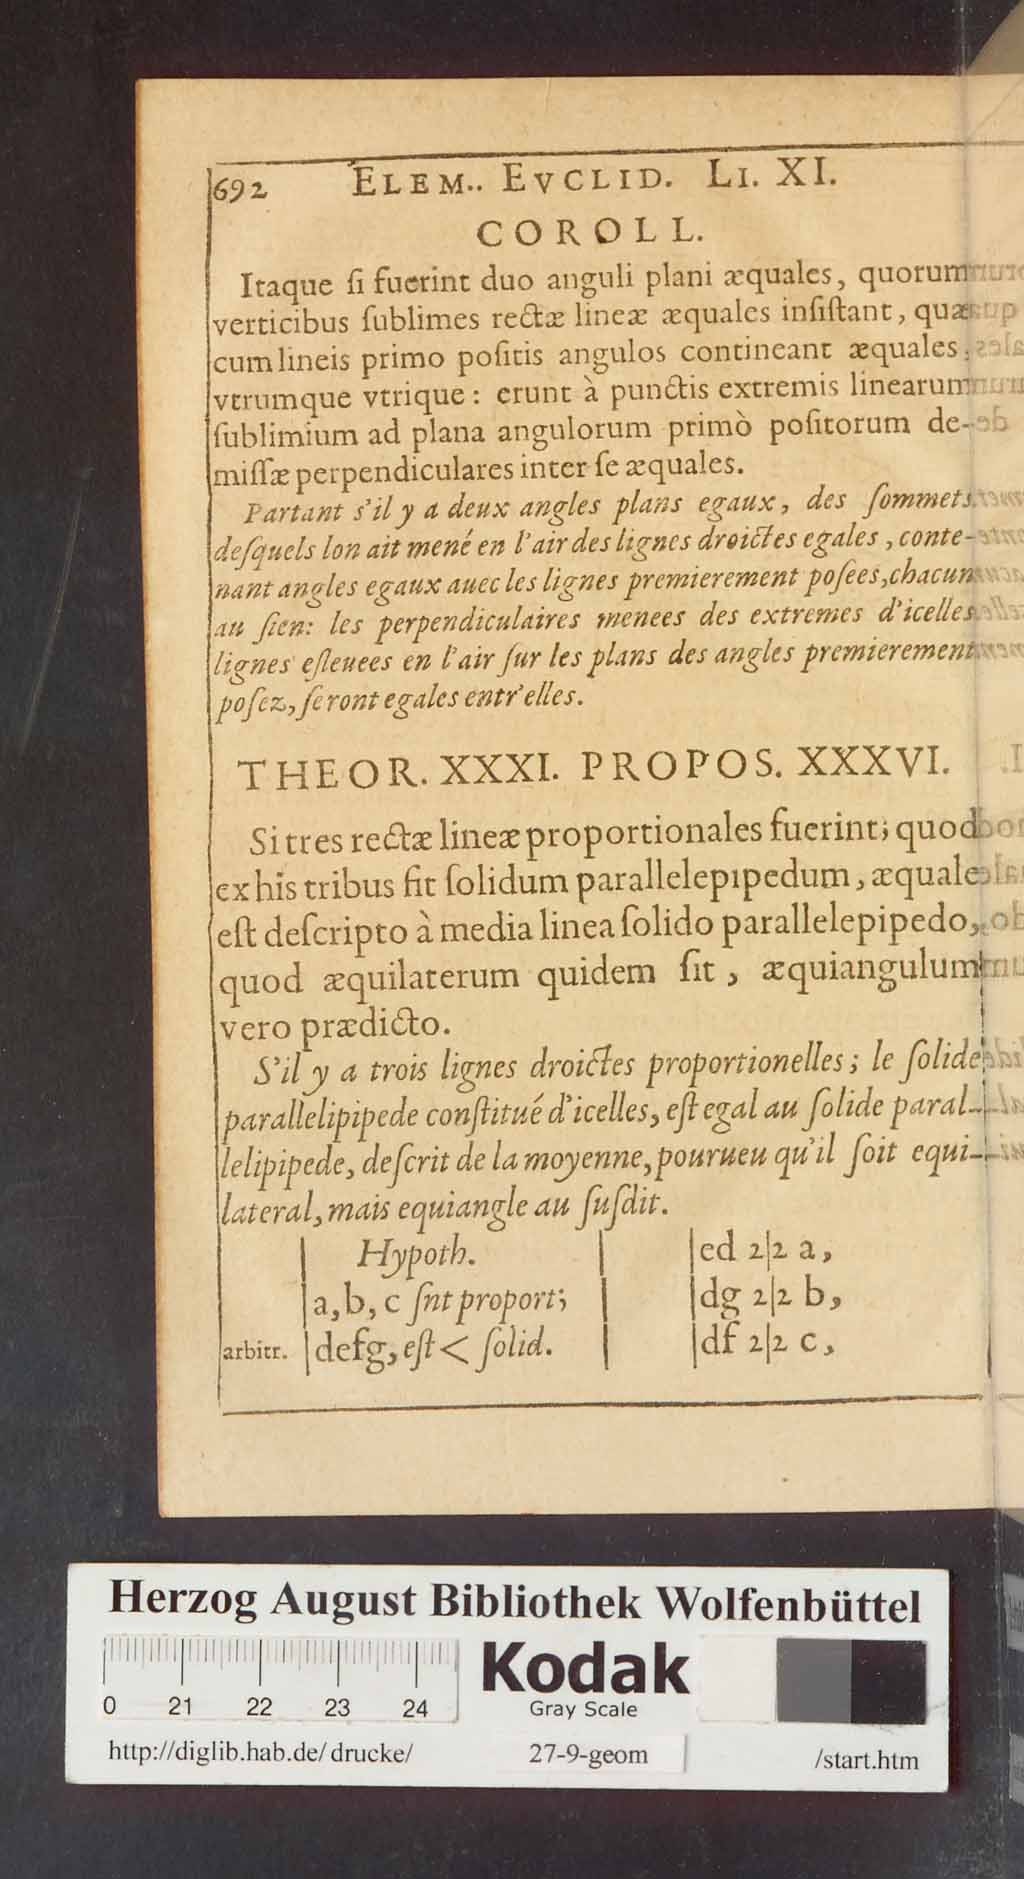 692 ELEM.. EVCLID. LI. XI.
COROLL.
Itaque ſi fuerint duo anguli plani æquales, quorum
verticibus ſublimes rectæ lineæ æquales inſiſtant, quæ
cum lineis primo poſitis angulos contineant æquales,
vtrumque vtrique: erunt à punctis extremis linearum
ſublimium ad plana angulorum primò poſitorum de-
miſſæ perpendiculares inter ſe æquales.
Partant s'il y a deux angles plans egaux, des ſommets
deſquels lon ait mené en l'air des lignes droictes egales, conte-
nant angles egaux auec les lignes premierement poſees, chacun
au ſien: les perpendiculaires menees des extremes d'icelles
lignes eſleuees en l'air ſur les plans des angles premierement
poſez, ſeront egales entr'elles.
THEOR. XXXI. PROPOS. XXXVI.
Si tres rectæ lineæ proportionales fuerint; quod
ex his tribus fit ſolidum parallelepipedum, æquale
eſt deſcripto à media linea ſolido parallelepipedo,
quod æquilaterum quidem ſit, æquiangulum
vero prædicto.
S'il y a trois lignes droictes proportionelles; le ſolide
parallelipipede conſtitué d'icelles, eſt egal au ſolide paral-
lelipipede, deſcrit de la moyenne, pourueu qu'il ſoit equi-
lateral, mais equiangle au ſuſdit.
Hypoth.
a, b, c ſnt proport;
arbitr. defg, eſt < ſolid.
ed 2|2 a,
dg 2|2 b,
df 2|2 c,
Herzog August Bibliothek Wolfenbüttel
0 21 22 23 24
Kodak
Gray Scale
http://diglib.hab.de/drucke/ 27-9-geom /start.htm